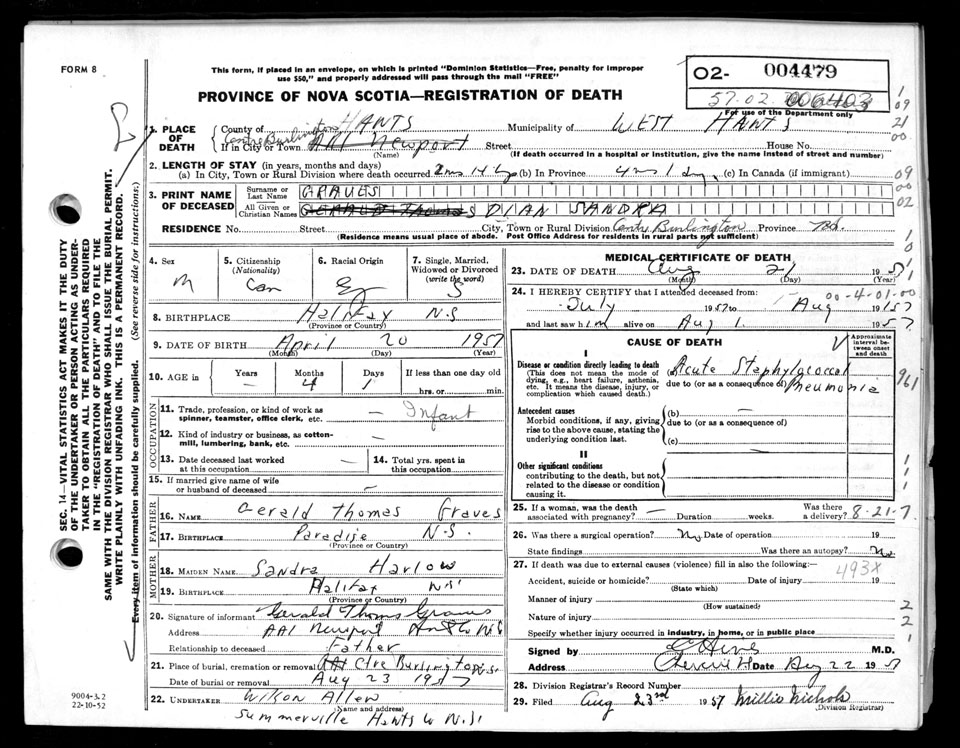 FORM 8
This form, if placed in an envelope, on which is printed "Dominion Statistics—Free, penalty for improper
use $50," and properly addressed will pass through the mail "FREE"
PROVINCE OF NOVA SCOTIA—REGISTRATION OF DEATH
02- 004479
57.02.
For use of the Department only
1. PLACE OF DEATH
County of HANTS Municipality of WEST HANTS
Centre Burlington
If in City or Town AR1 Newport Street House No.
(Name) (If death occurred in a hospital or institution, give the name instead of street and number)
2. LENGTH OF STAY (in years, months and days)
(a) In City, Town or Rural Division where death occurred (b) In Province 4 ms 1 dy (c) In Canada (if immigrant)
3. PRINT NAME OF DECEASED
Surname or Last Name GRAVES
All Given or Christian Names GERALD THOMAS DIAN SANDRA
RESIDENCE No. Street City, Town or Rural Division Centre Burlington Province
(Residence means usual place of abode. Post Office Address for residents in rural parts not sufficient)
4. Sex M
5. Citizenship (Nationality) Can
6. Racial Origin
7. Single, Married, Widowed or Divorced (write the word) S
8. BIRTHPLACE Halifax N.S
(Province or Country)
9. DATE OF BIRTH April 20 1957
(Month) (Day) (Year)
10. AGE in Years — Months 4 Days 1 If less than one day old
hrs. or min.
OCCUPATION
11. Trade, profession, or kind of work as spinner, teamster, office clerk, etc. — Infant
12. Kind of industry or business, as cotton-mill, lumbering, bank, etc. —
13. Date deceased last worked at this occupation —
14. Total yrs. spent in this occupation
15. If married give name of wife or husband of deceased —
FATHER
16. NAME Gerald Thomas Graves
17. BIRTHPLACE Paradise N.S.
(Province or Country)
MOTHER
18. MAIDEN NAME Sandra Harlow
19. BIRTHPLACE Halifax NS
(Province or Country)
20. Signature of informant Gerald Thomas Graves
Address AR1 Newport Hants Co N.S
Relationship to deceased Father
21. Place of burial, cremation or removal Ctre Burlington N.S.
Date of burial or removal Aug 23 1957
22. UNDERTAKER Wilson Allen
(Name and address)
Summerville Hants Co N.S.
MEDICAL CERTIFICATE OF DEATH
23. DATE OF DEATH Aug 21 1957
(Month) (Day) (Year)
24. I HEREBY CERTIFY that I attended deceased from:
July 1957 to Aug 1957
00-4-01-00
and last saw him alive on Aug 1. 1957
CAUSE OF DEATH
Approximate interval between onset and death
I
Disease or condition directly leading to death
(This does not mean the mode of dying, e.g., heart failure, asthenia, etc. It means the disease, injury, or complication which caused death.)
(a) Acute Staphylococcal
due to (or as a consequence of) Pneumonia
Antecedent causes
Morbid conditions, if any, giving rise to the above cause, stating the underlying condition last.
(b) —
due to (or as a consequence of)
(c)
II
Other significant conditions
contributing to the death, but not related to the disease or condition causing it.
25. If a woman, was the death associated with pregnancy? — Duration weeks. Was there a delivery? 8-21-7
26. Was there a surgical operation? No Date of operation 19
State findings Was there an autopsy? No
27. If death was due to external causes (violence) fill in also the following:—
493X
Accident, suicide or homicide? Date of injury 19
(State which)
Manner of injury
(How sustained)
Nature of injury
Specify whether injury occurred in industry, in home, or in public place
Signed by M.D.
Address Date Aug 22 1957
28. Division Registrar's Record Number
29. Filed Aug 23rd 1957 Millie Nichols
(Division Registrar)
SEC. 14—VITAL STATISTICS ACT MAKES IT THE DUTY
OF THE UNDERTAKER OR PERSON ACTING AS UNDER-
TAKER TO OBTAIN ALL THE PARTICULARS REQUIRED
IN THE "REGISTRATION OF DEATH" AND TO FILE THE
SAME WITH THE DIVISION REGISTRAR WHO SHALL ISSUE THE BURIAL PERMIT.
WRITE PLAINLY WITH UNFADING INK. THIS IS A PERMANENT RECORD.
Every item of information should be carefully supplied. (See reverse side for instructions.)
9004-3.2
22-10-52
1
09
21
00
09
00
02
1
0
961
1
1
1
2
2
1